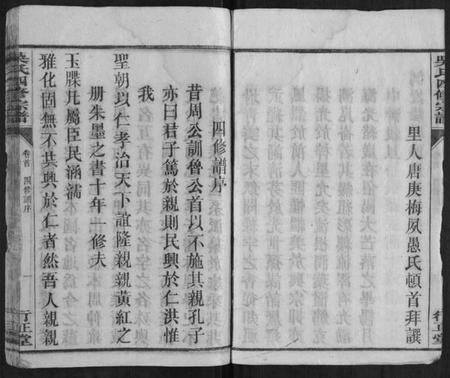 吳氏四修宗譜
里人唐庚梅夙愚氏頓首拜譔
行正堂
四修譜序
昔周公訓魯公首以不施其親孔子
亦曰君子篤於親則民興於仁洪惟
我
聖朝以仁孝治天下誼隆親親黃紅之
册朱墨之書十年一修夫
玉牒凡屬臣民涵濡
雅化固無不共興於仁者然吾人親親
吳氏四修宗譜
卷首
四修譜序
一
行正堂